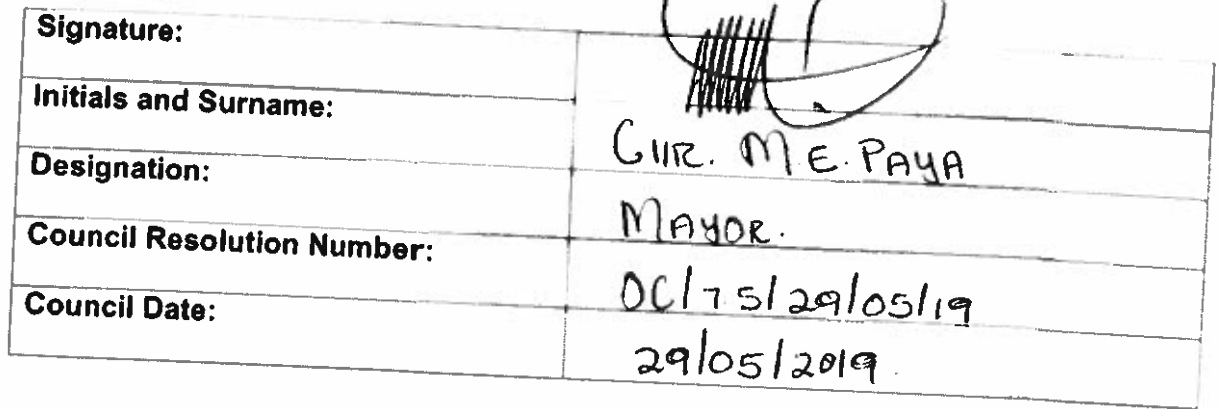 Signature:
Initials and Surname: Cllr. M.E. PAYA
Designation: MAYOR.
Council Resolution Number: OC/75/29/05/19
Council Date: 29/05/2019